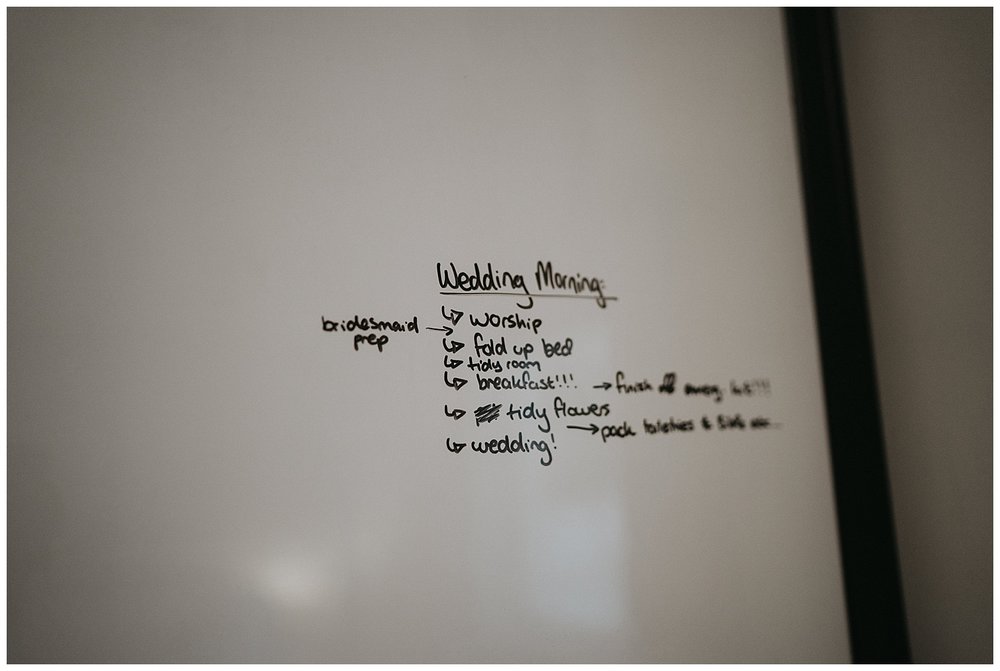 Wedding Morning:
↳ worship
bridesmaid prep →
↳ fold up bed
↳ tidy room
↳ breakfast!!! → finish off
↳ tidy flowers
→ pack toiletries &
↳ wedding!